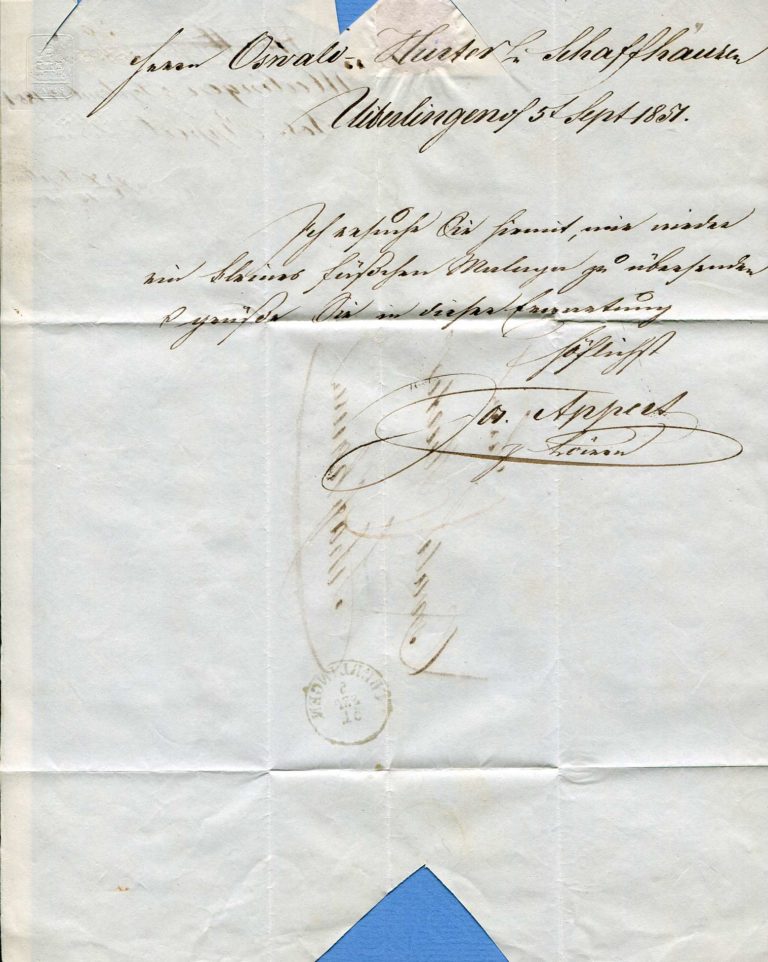 Herrn Oswald Hurter in Schaffhausen
Ueberlingen d 5t Sept 1851.
Ich ersuche Sie hiermit, mir wieder
ein kleines Fäßchen Malaga zu übersenden
& grüße Sie in dieser Erwartung
höflichst
Jos. Appert
z. Löwen